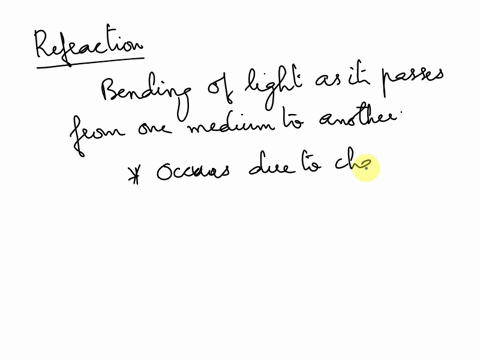 Refraction
Bending of light as it passes
from one medium to another.
* Occurs due to cha